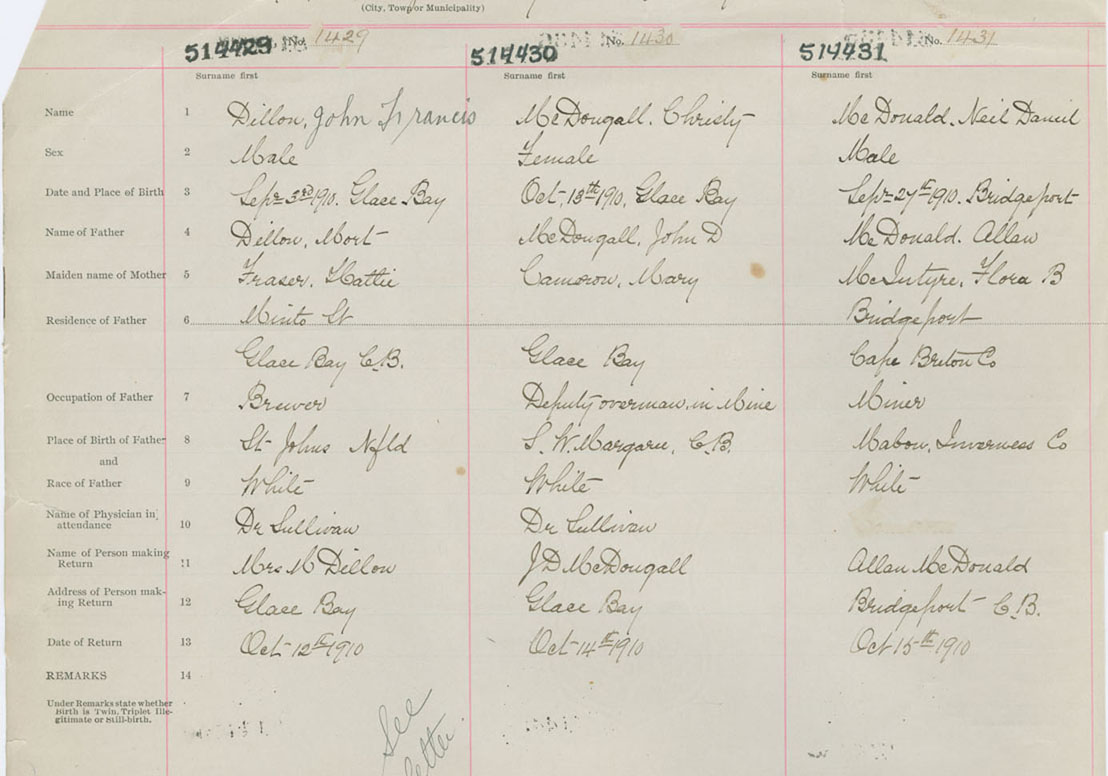 (City, Town or Municipality)
514429 No. 1429 514430 No. 1430 514431 No. 1431
Surname first Surname first Surname first
Name 1 Dillon, John Francis McDougall. Christy McDonald. Neil Daniel
Sex 2 Male Female Male
Date and Place of Birth 3 Sept 3rd 1910. Glace Bay Oct. 13th 1910, Glace Bay Sept 27th 1910. Bridgeport
Name of Father 4 Dillon, Mort McDougall, John D McDonald. Allan
Maiden name of Mother 5 Fraser. Hattie Cameron, Mary McIntyre, Flora B
Residence of Father 6 Minto St Bridgeport
Glace Bay C.B. Glace Bay Cape Breton Co
Occupation of Father 7 Brewer Deputy overman, in Mine Miner
Place of Birth of Father 8 St Johns Nfld S. W. Margaree, C.B. Mabou, Inverness Co
and
Race of Father 9 White White White
Name of Physician in attendance 10 Dr Sullivan Dr Sullivan
Name of Person making Return 11 Mrs M Dillon J D McDougall Allan McDonald
Address of Person making Return 12 Glace Bay Glace Bay Bridgeport C.B.
Date of Return 13 Oct 12th 1910 Oct 14th 1910 Oct 15th 1910
REMARKS 14
Under Remarks state whether
Birth is Twin, Triplet Ille-
gitimate or Still-birth.
See
letter